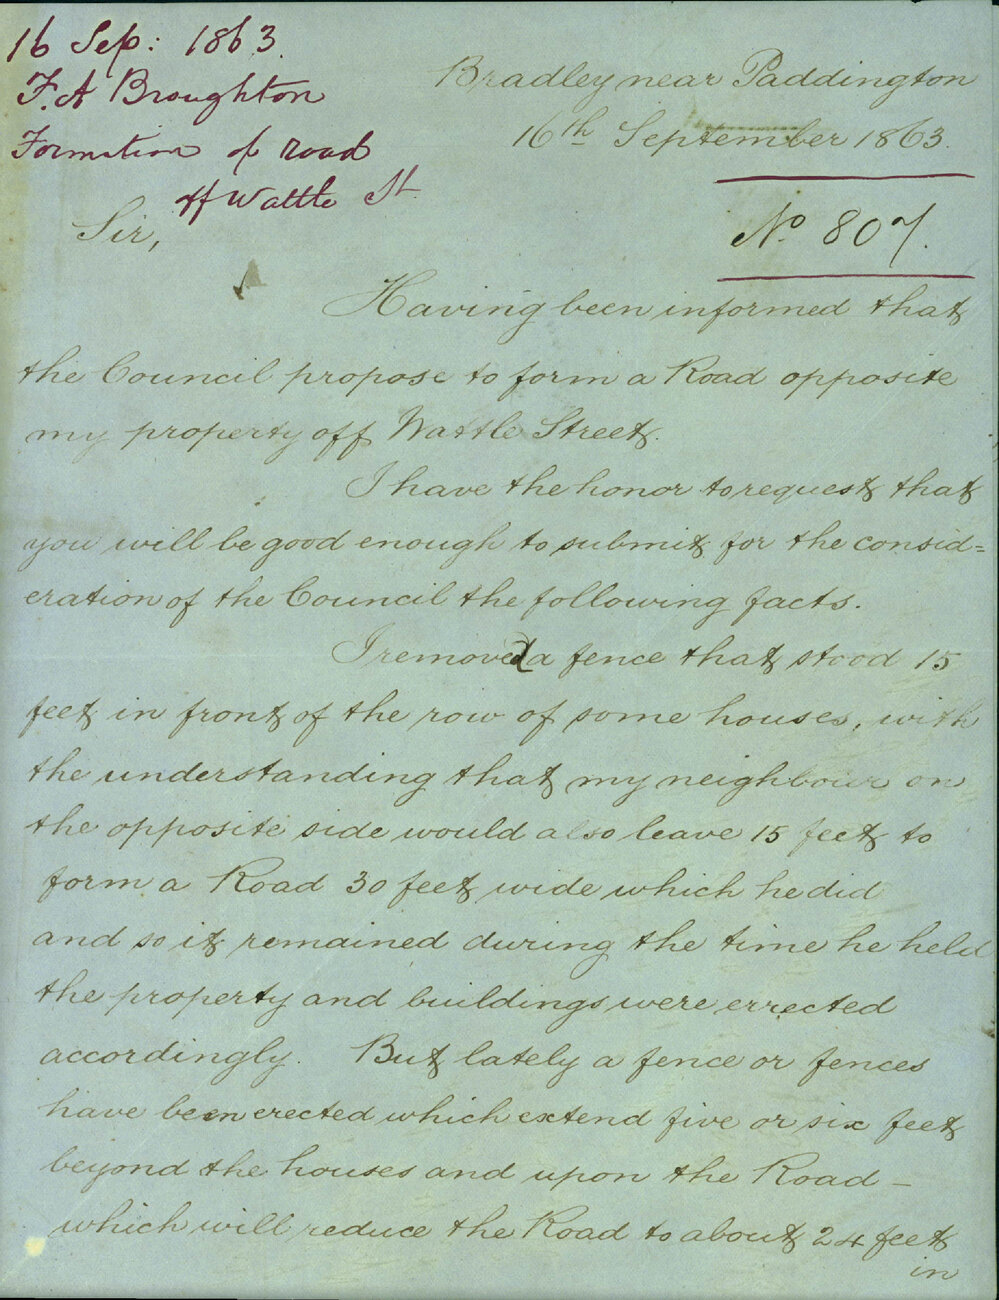 16 Sep: 1863.
F. A Broughton
Formation of road
off Wattle St
Bradley near Paddington
16th September 1863.
No 807.
Sir,
Having been informed that
the Council propose to form a Road opposite
my property off Wattle Street.
I have the honor to request that
you will be good enough to submit for the consid=
eration of the Council the following facts.
I removed a fence that stood 15
feet in front of the row of some houses, with
the understanding that my neighbour on
the opposite side would also leave 15 feet to
form a Road 30 feet wide which he did
and so it remained during the time he held
the property and buildings were errected
accordingly. But lately a fence or fences
have been erected which extend five or six feet
beyond the houses and upon the Road –
which will reduce the Road to about 24 feet
in